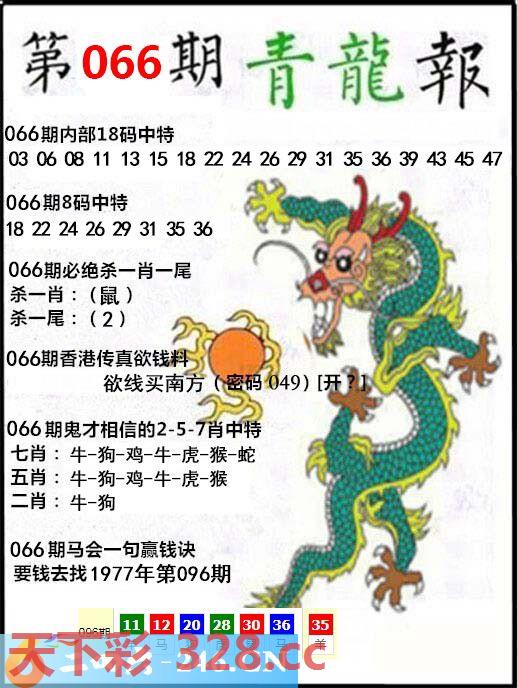 第066期青龍報
066期内部18码中特
03 06 08 11 13 15 18 22 24 26 29 31 35 36 39 43 45 47
066期8码中特
18 22 24 26 29 31 35 36
066期必绝杀一肖一尾
杀一肖：（鼠）
杀一尾：（2）
066期香港传真欲钱料
欲线买南方（密码049）[开？]
066期鬼才相信的2-5-7肖中特
七肖：牛-狗-鸡-牛-虎-猴-蛇
五肖：牛-狗-鸡-牛-虎-猴
二肖：牛-狗
066期马会一句赢钱诀
要钱去找1977年第096期
096期 11 12 20 28 30 36 35
马 马 羊
天下彩-328.cc